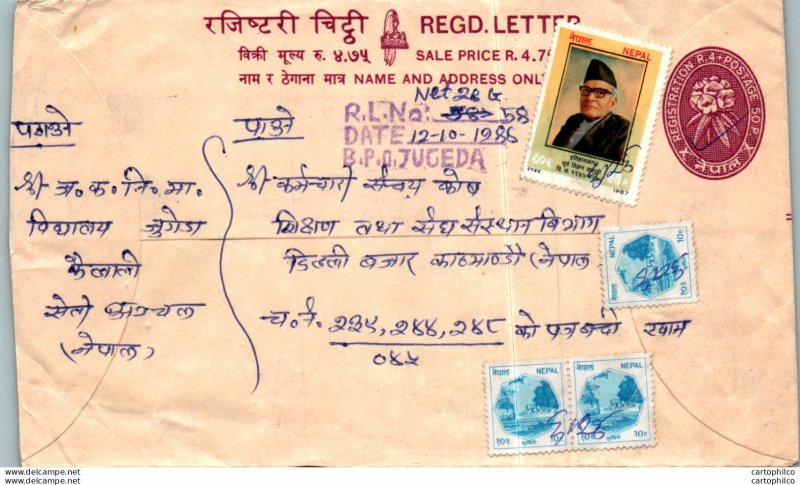 रजिष्टरी चिट्ठी REGD. LETTER
विक्री मूल्य रु. ४.७५ SALE PRICE R. 4.75
नाम र ठेगाना मात्र NAME AND ADDRESS ONLY
REGISTRATION R.4+POSTAGE 50P.
नेपाल
Net 28 G.
R.L.No: 58
DATE 12-10-1986
B.P.O. JUGEDA
पठाउने
श्री अ.क.नि.मा.
विद्यालय जुगेडा
कैलाली
सेती अञ्चल
(नेपाल)
पाउने
श्री कर्मचारी संचय कोष
शिक्षण तथा संघ संस्थान विभाग
डिल्ली बजार काठमाण्डौ (नेपाल
च.नं. २३५, २४४, २४८ को पत्र
०४५
नेपाल NEPAL
इतिहासकार
सूर्य विक्रम ज्ञवाली
1987
NEPAL नेपाल
10P
१०प
नेपाल NEPAL
१०प 10P
लुम्बिनी
नेपाल NEPAL
१०प 10P
लुम्बिनी
cartophilco
cartophilco